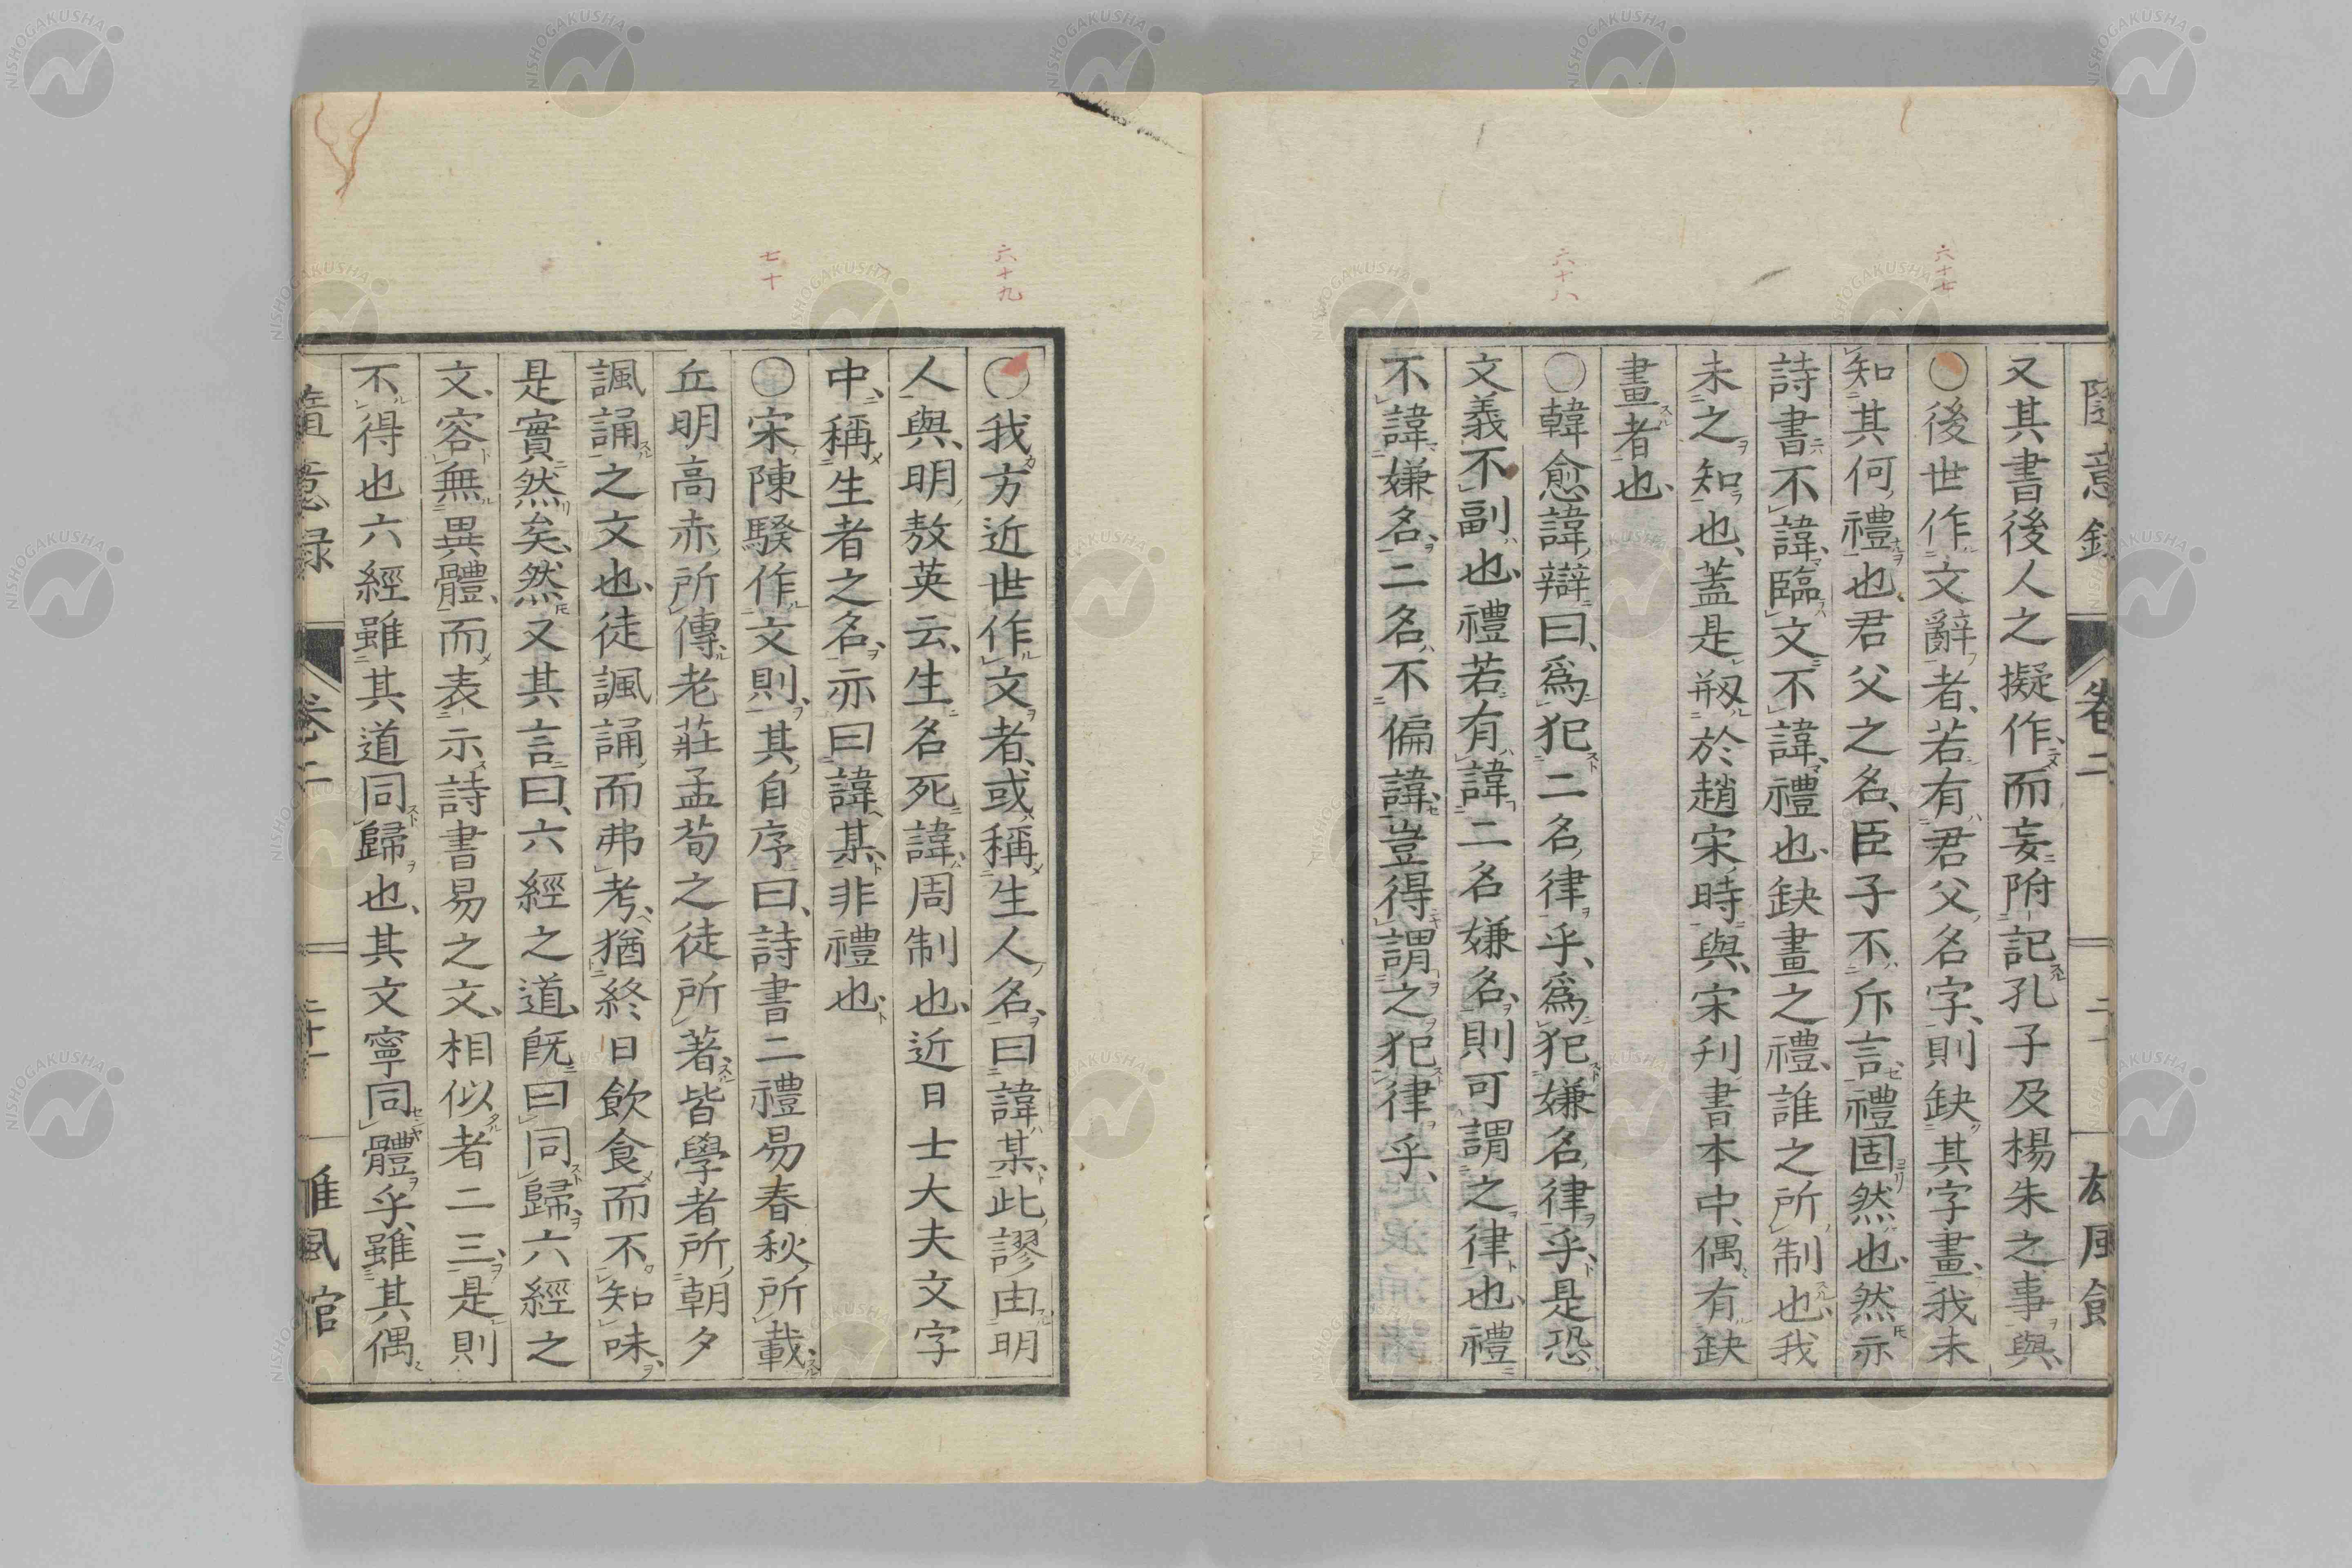 隨意錄 卷二 二十 雄風館
六十七
六十八
又其書後人之擬作而妄附記孔子及楊朱之事與
〇後世作文辭者若有君父名字則缺其字畫我未
知其何禮也君父之名臣子不斥言禮固然也然亦
詩書不諱臨文不諱禮也缺畫之禮誰之所制也我
未之知也蓋是刱於趙宋時與宋刋書本中偶有缺
畫者也
〇韓愈諱辯曰爲犯二名律乎爲犯嫌名律乎是恐
文義不副也禮若有諱二名嫌名則可謂之律也禮
不諱嫌名二名不偏諱豈得謂之犯律乎
六十九
七十
〇我方近世作文者或稱生人名曰諱某此謬由明
人與明敖英云生名死諱周制也近日士大夫文字
中稱生者之名亦曰諱某非禮也
〇宋陳騤作文則其自序曰詩書二禮易春秋所載
丘明高赤所傳老莊孟荀之徒所著皆學者所朝夕
諷誦之文也徒諷誦而弗考猶終日飲食而不知味
是實然矣然又其言曰六經之道既曰同歸六經之
文容無異體而表示詩書易之文相似者二三是則
不得也六經雖其道同歸也其文寧同體乎雖其偶
隨意録 卷二 二十一 雄風館